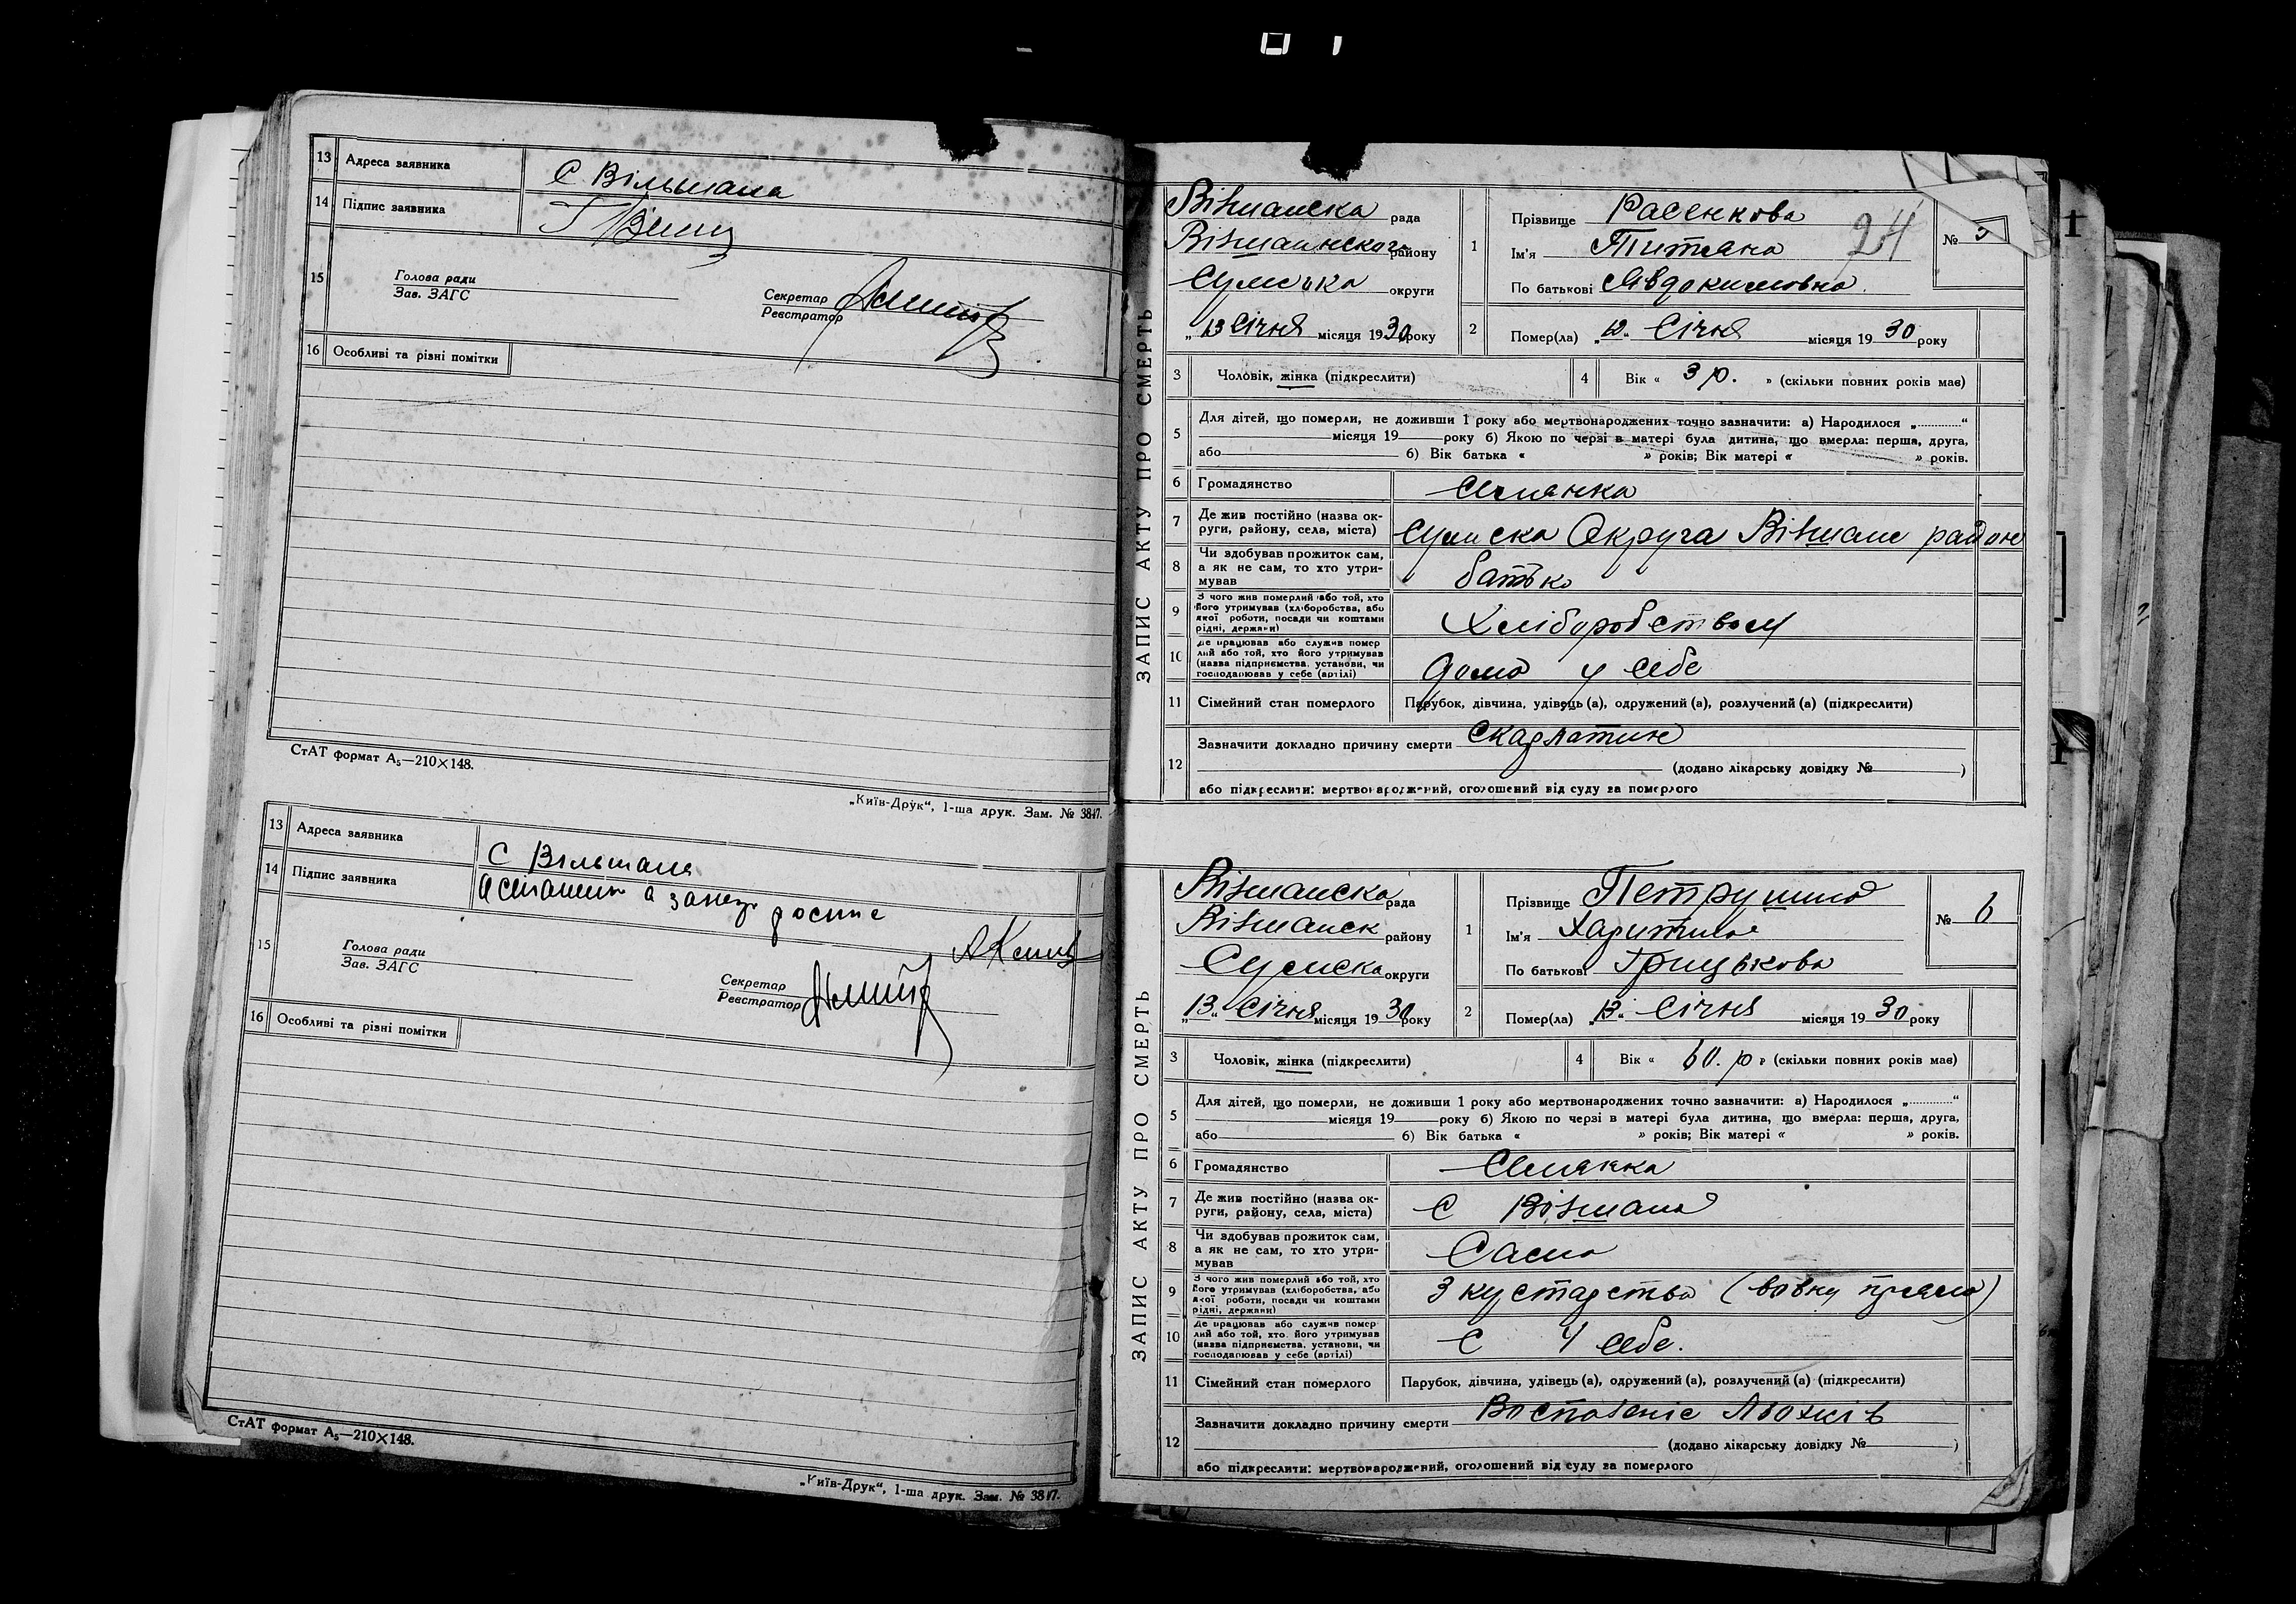 13 Адреса заявника С Вільшана
14 Підпис заявника
15 Голова ради
Зав. ЗАГС
Секретар
Реєстратор
16 Особливі та різні помітки
СтАТ формат А₅—210×148.
„Київ-Друк“, 1-ша друк. Зам. № 3847.
13 Адреса заявника С Вільшана
14 Підпис заявника
15 Голова ради
Зав. ЗАГС
Секретар
Реєстратор
16 Особливі та різні помітки
СтАТ формат А₅—210×148.
„Київ-Друк“, 1-ша друк. Зам. № 3847.
ЗАПИС АКТУ ПРО СМЕРТЬ
Вільшанска рада
Вільшанського району
Сумська округи
„13 Січня місяця 1930 року
1 Прізвище Расенкова
Ім'я Титяна
По батькові Явдокимовна
24
№ 5
2 Помер(ла) „12“ Січня місяця 1930 року
3 Чоловік, жінка (підкреслити)
4 Вік « 3 р. » (скільки повних років має)
5 Для дітей, що померли, не доживши 1 року або мертвонароджених точно зазначити: а) Народилося „ “
місяця 19 року б) Якою по черзі в матері була дитина, що вмерла: перша, друга,
або б) Вік батька « » років; Вік матері « » років.
6 Громадянство
7 Де жив постійно (назва ок-
руги, району, села, міста) Сумска Округа Вільшане район
8 Чи здобував прожиток сам,
а як не сам, то хто утри-
мував батько
9 З чого жив померлий або той, хто
його утримував (хліборобства, або
якої роботи, посади чи коштами
рідні, держави) Хліборобством
10 Де працював або служив помер
лий або той, хто його утримував
(назва підприємства, установи, чи
господарював у себе (артілі) дома у себе
11 Сімейний стан померлого Парубок, дівчина, удівець (а), одружений (а), розлучений (а) (підкреслити)
12 Зазначити докладно причину смерти Скарлатине
(додано лікарську довідку № )
або підкреслити: мертвонароджений, оголошений від суду за померлого
ЗАПИС АКТУ ПРО СМЕРТЬ
Вільшанска рада
Вільшанск району
Сумска округи
„13“ Січня місяця 1930 року
1 Прізвище Петрушина
Ім'я Харитина
По батькові Грицькова
№ 6
2 Помер(ла) „13“ Січня місяця 1930 року
3 Чоловік, жінка (підкреслити)
4 Вік « 60. р » (скільки повних років має)
5 Для дітей, що померли, не доживши 1 року або мертвонароджених точно зазначити: а) Народилося „ “
місяця 19 року б) Якою по черзі в матері була дитина, що вмерла: перша, друга,
або б) Вік батька « » років; Вік матері « » років.
6 Громадянство
7 Де жив постійно (назва ок-
руги, району, села, міста) С Вільшана
8 Чи здобував прожиток сам,
а як не сам, то хто утри-
мував Сама
9 З чого жив померлий або той, хто
його утримував (хліборобства, або
якої роботи, посади чи коштами
рідні, держави) З кустарства (вовну пряла)
10 Де працював або служив помер
лий або той, хто його утримував
(назва підприємства, установи, чи
господарював у себе (артілі) С У себе.
11 Сімейний стан померлого Парубок, дівчина, удівець (а), одружений (а), розлучений (а) (підкреслити)
12 Зазначити докладно причину смерти Воспаленіе
(додано лікарську довідку № )
або підкреслити: мертвонароджений, оголошений від суду за померлого